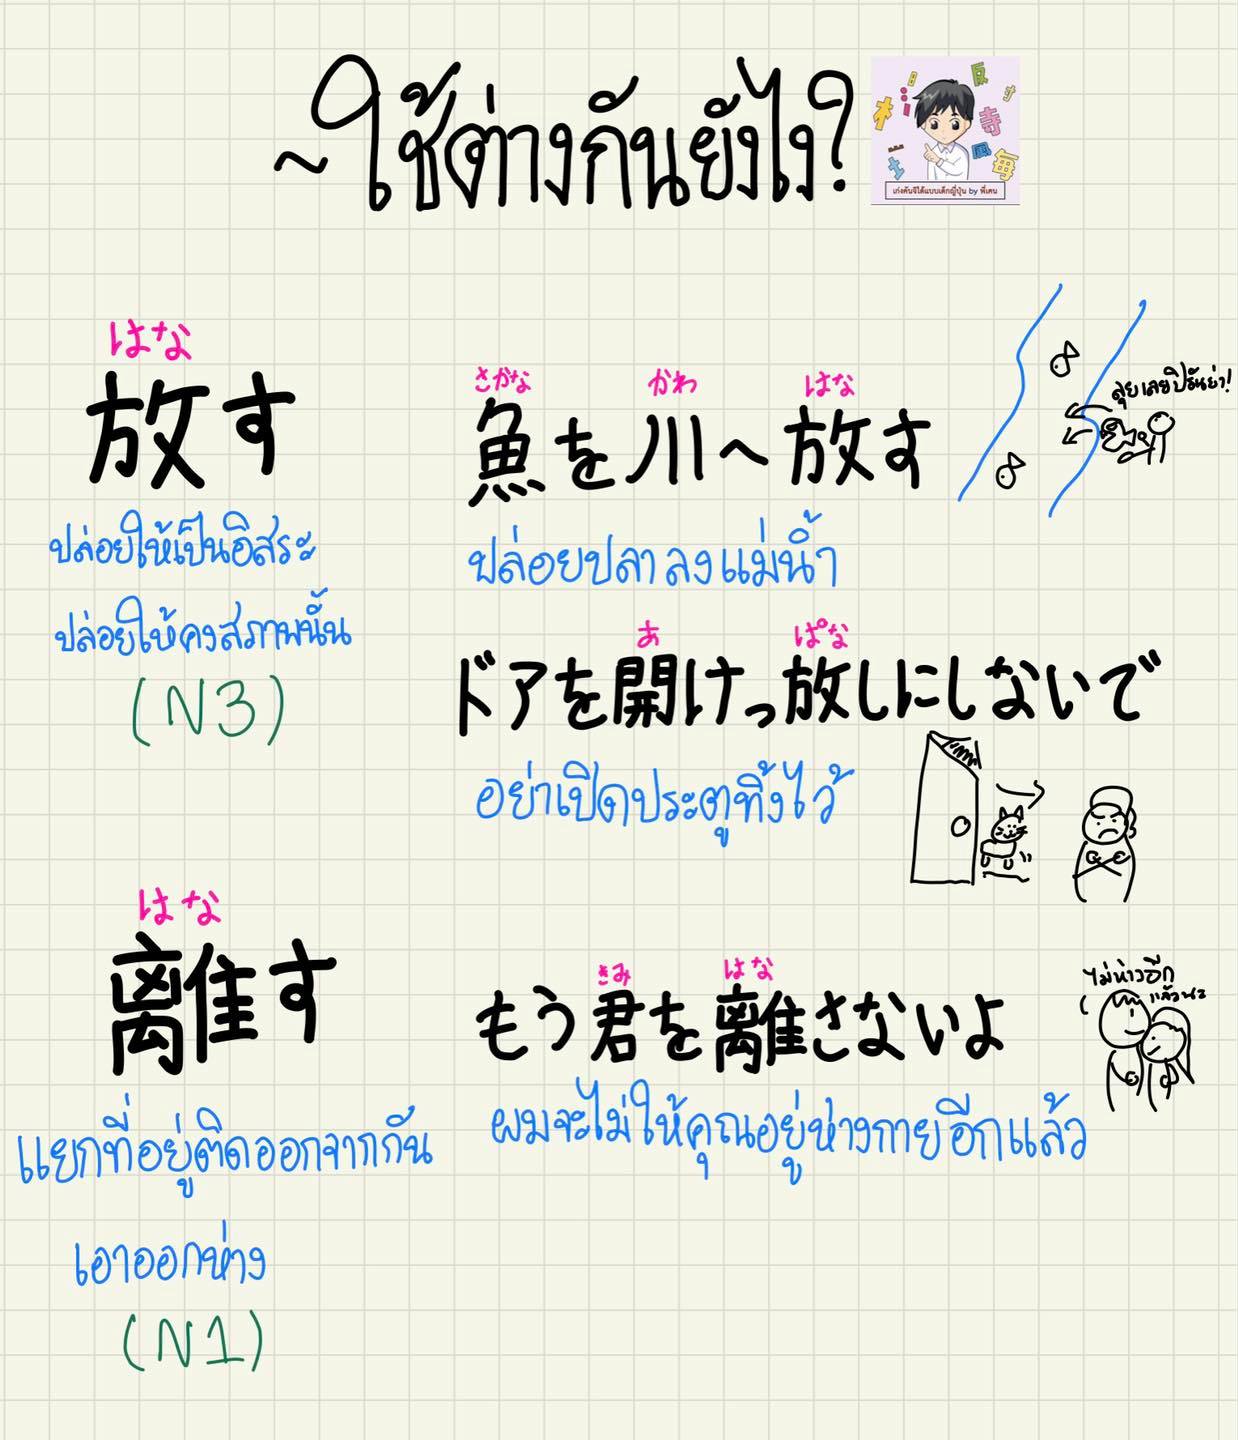 ~ใช้ต่างกันยังไง?
เก่งคันจิได้แบบเด็กญี่ปุ่น by พี่เคน
はな
放す
ปล่อยให้เป็นอิสระ
ปล่อยให้คงสภาพนั้น
(N3)
さかな かわ はな
魚を川へ放す
ลุยเลยปิรันย่า!
ปล่อยปลาลงแม่น้ำ
あ ぱな
ドアを開けっ放しにしないで
อย่าเปิดประตูทิ้งไว้
はな
離す
แยกที่อยู่ติดออกจากกัน
เอาออกห่าง
(N1)
きみ はな
もう君を離さないよ
ไม่ห่างอีก
แล้วนะ
ผมจะไม่ให้คุณอยู่ห่างกายอีกแล้ว